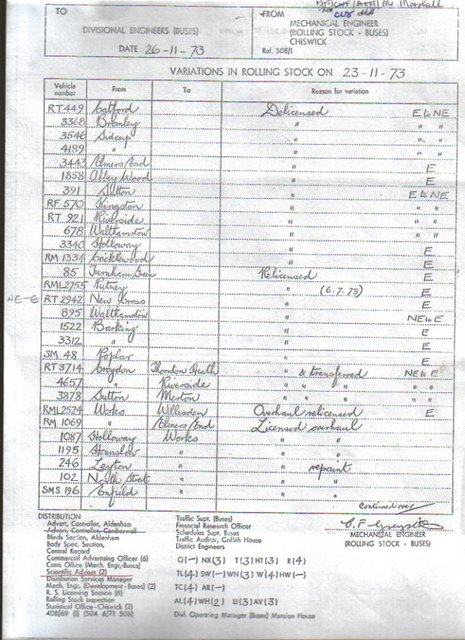 TO
DIVISIONAL ENGINEERS (BUSES)
DATE 26-11-73
FROM
MECHANICAL ENGINEER
(ROLLING STOCK - BUSES)
CHISWICK
Ref. 508/1
VARIATIONS IN ROLLING STOCK ON 23-11-73
Vehicle number From To Reason for variation
RT 449 Catford Delicensed E to NE
3368 Bromley " " "
3546 Sidcup " " "
4189 " " " "
3443 Elmers End " E
1858 Abbey Wood " E
391 Sutton " E to NE
RF 570 Kingston " " "
RT 921 Riverside " " "
678 Walthamstow " " "
3340 Holloway " E
RM 1334 Cricklewood " E
85 Turnham Green Relicensed E
RML2755 Putney " (6.7.73) E
NE-E RT 2942 New Cross " E
895 Walthamstow " NE to E
1522 Barking " E
3312 " " E
SM 48 Poplar " E
RT 3714 Croydon Thornton Heath " & transferred NE to E
4657 " Riverside " " " " "
3878 Sutton Merton " " " " "
RML2524 Works Willesden Overhaul relicensed E
RM 1069 " Elmers End Licensed overhaul
1087 Holloway Works " "
1195 Hounslow " " "
246 Leyton " " repaint
102 North Street " " "
SMS 196 Enfield " " "
Continued over
MECHANICAL ENGINEER
(ROLLING STOCK - BUSES)
DISTRIBUTION
Advert. Controller, Aldenham
Advert. Controller, Camberwell
Blinds Section, Aldenham
Body Spec. Section,
Central Record
Commercial Advertising Officer (6)
Costs Office (Mech. Engr.-Buses)
Scientific Adviser (2)
Distribution Services Manager
Mech. Engr. (Development - Buses) (2)
R. S. Licensing Section (8)
Rolling Stock Inspection
Statistical Office - Chiswick (2)
408/69 (1) (504 6/71 508)
Traffic Supt. (Buses)
Financial Research Officer
Schedules Supt. Buses
Traffic Auditor, Griffith House
District Engineers
Q(-) NX(3) T(3) HT(3) R(4)
TL(4) SW(-) WN(3) W(4) HW(-)
TC(4) AR(-)
AL(4) WH(2) U(3) AV(3)
Divl. Operating Manager (Buses) Mansion House